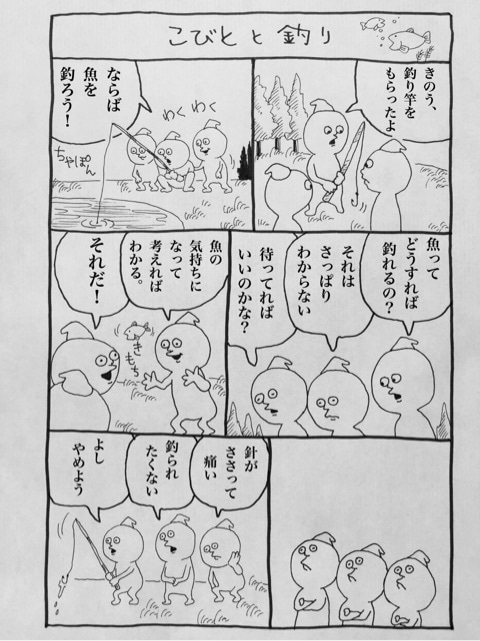 こびとと釣り
きのう、
釣り竿を
もらったよ
わくわく
ならば
魚を
釣ろう！
ちゃぽん
魚って
どうすれば
釣れるの？
それは
さっぱり
わからない
待ってれば
いいのかな？
魚の
気持ちに
なって
考えれば
わかる。
きもち
それだ！
針が
ささって
痛い
釣られ
たくない
よし
やめよう